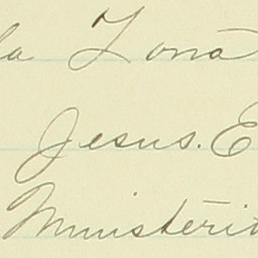 la Zona
Jesus. E
Ministeri